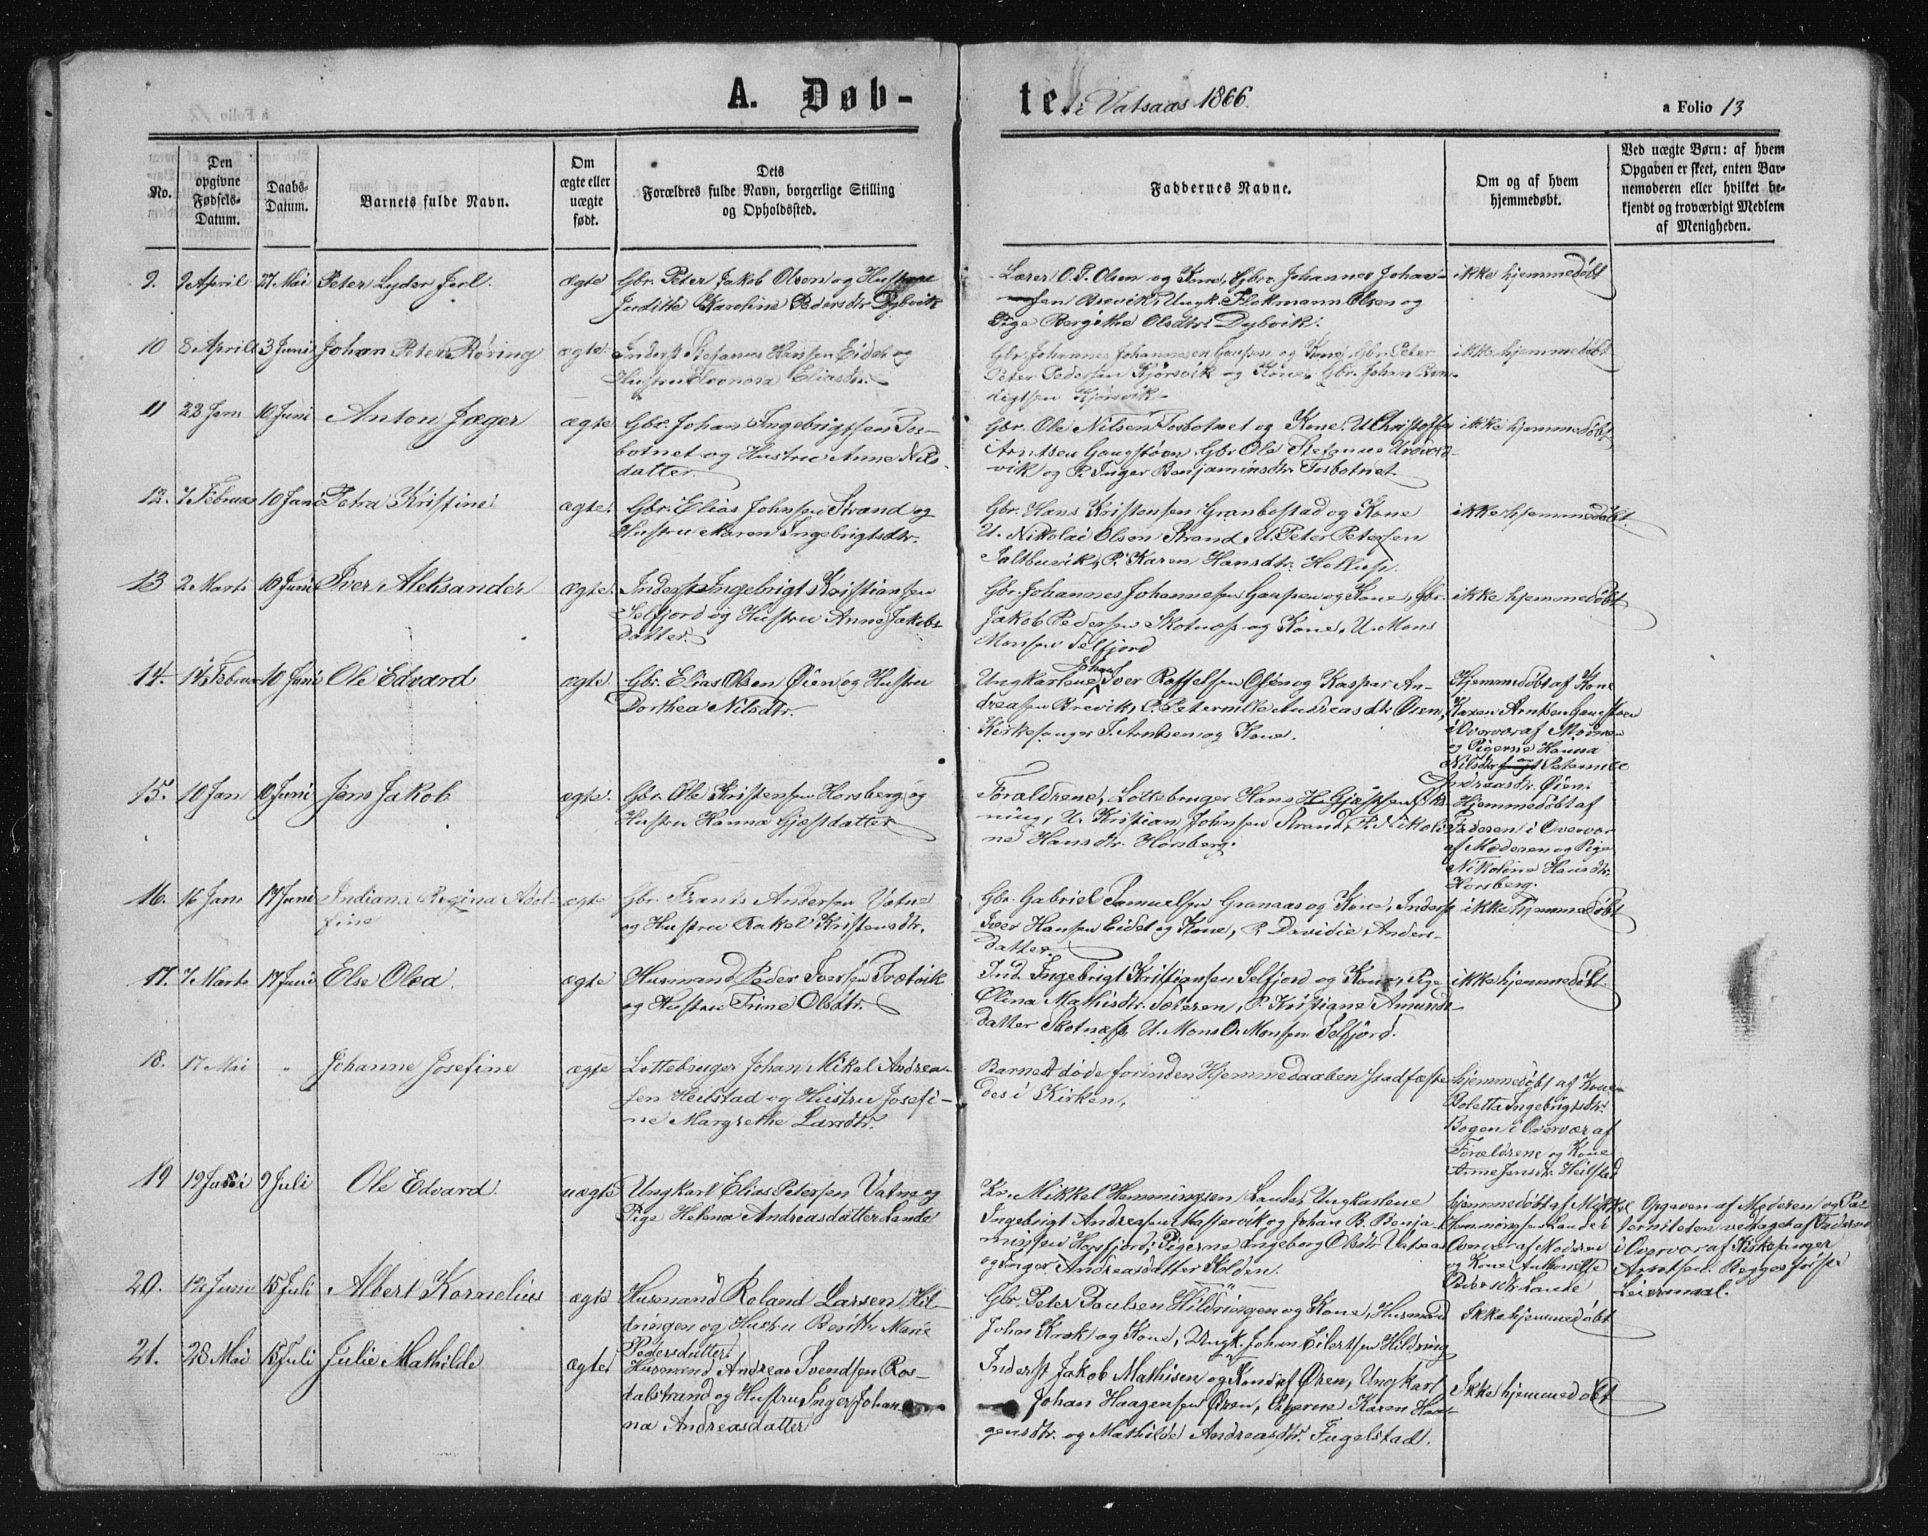 A. Døbte. i Vatsaas 1866.
a Folio 13
No.
Den opgivne Fødsels-Datum.
Daabs-Datum.
Barnets fulde Navn.
Om ægte eller uægte født.
Dets Forældres fulde Navn, borgerlige Stilling og Opholdssted.
Faddernes Navne.
Om og af hvem hjemmedøbt.
Ved uægte Børn: af hvem Opgaven er skeet, enten Barnemoderen eller hvilket bekjendt og troværdigt Medlem af Menigheden.
9. 9 April 27 Mai Peter Lyder Jerl. ægte
Gbr. Peter Jakob Olsen og Hustru
Judithe Karoline Pedersdtr. Dybvik
Lærer O. P. Olsen og Kone, Gbr. Johannes Johan-
sen Brevik, Ungk. Flekmann Olsen og
Pige Bergithe Olsdtr. Dybvik.
ikke hjemmedøbt
10 8 April 3 Juni Johan Peter Røring ægte
Inderst Stefanus Hansen Eidet og
Hustru Eleonora Eliasdtr.
Gbr. Johannes Johannesen Haupen og Kone, Gbr. Peter
Peter Pedersen Kjørsvik og Kone, Gbr. Johan Ben-
digtsen Kjørsvik
ikke hjemmedøbt
11 23 Jan 10 Juni Anton Jæger ægte
Gbr. Johan Ingebrigtsen Tos-
botnet og Hustru Anne Nils-
datter
Gbr. Ole Nilsen Tosbotnet og Kone, U. Christoffer
Arntsen Gaugstøen, Gbr. Ole Stefanus
vik og P. Inger Benjaminsdtr. Tosbotnet
ikke hjemmedøbt
12. 7 Februar 10 Juni Petra Kristine ægte.
Gbr. Elias Johnsen Strand og
Hustru Maren Ingebrigtsdtr.
Gbr. Hans Kristensen Granbostad og Kone
U. Nikolai Olsen Strand, U. Peter Petersen
Saltbuvik, P. Karen Hansdtr. Hollup.
ikke hjemmedøbt.
13 2 Marts 10 Juni Iver Aleksander ægte.
Inderst Ingebrigt Kristiansen
Selfjord og Hustru Anne Jakobs-
datter
Gbr. Johannes Johannesen Haupen og Kone, Gbr.
Jakob Pedersen Skotnæs og Kone, U. Mons
Monsen Selfjord
ikke hjemmedøbt
14. 15 Februar 10 Juni Ole Edvard ægte.
Gbr. Elias Olsen Øien og Hustru
Dorthea Nilsdtr.
Ungkarlene Iver Raffelsen Øien og Kaspar An-
dreasen Brevik, P. Peternille Andreasdtr. Øien,
Kirkesanger S. Arntsen og Kone.
Hjemmedøbt af Kone
Karen Arntsen Gaugstøen
i Overvær af Moderen
og Pigerne Hanna
Nilsdtr. og Peternille
Andreasdtr. Øien.
15. 10 Jan 10 Juni Jens Jakob ægte.
Gbr. Ole Kristensen Horsberg og
Hustru Hanna Gjæstdatter
Forældrene, Lottebruger Hans H. Gjæstsen
ning, U. Kristian Johnsen Strand, P. Nikoli-
ne Hansdtr. Horsberg.
Hjemmedøbt af
Faderen i Overvær
af Moderen og Pige
Nikoline Hansdtr.
Horsberg.
16. 16 Jan 17 Juni Indiana Regina Adol-
fine ægte
Gbr. Frants Andersen Vatne
og Hustru Rakel Kristensdtr.
Gbr. Gabriel Samuelsen Granaas og Kone, Inderst
Iver Hansen Eidet og Kone, P. Davidie Anders-
datter
ikke hjemmedøbt
17. 7 Marts 17 Juni Else Olea. ægte
Husmand Peder Iversen Trætvik
og Hustru Trine Olsdtr.
Ind. Ingebrigt Kristiansen Selfjord og Kone, Pige
Olina Mathisdtr. Sæteren, P. Kristiane Amunds-
datter Skotnæs, U. Mons O. Monsen Selfjord.
ikke hjemmedøbt.
18. 17 Mai " Johanne Josefine ægte
Lottebruger Johan Mikal Andrea-
sen Heilstad og Hustru Josefi-
ne Margrethe Larsdtr.
Barnet døde forinden Hjemmedaaben stadfæste-
des i Kirken.
hjemmedøbt af Kone
Boletta Ingebrigtsdtr.
Bogen i Overvær af
Forældrene og Kone
Anne Jensdtr. Heilstad
19 19 Juni 9 Juli Ole Edvard uægte
Ungkarl Elias Petersen Vatne og
Pige Helena Andreasdatter Lande
Kr. Mikkel Hemmingsen Lande, Ungkarlene
Ingebrigt Andreasen Kassevik og Johan B. Benja-
minsen Horsfjord, Pigerne Ingeborg Olsdtr. Vatsaas
og Inger Andreasdatter Holden.
hjemmedøbt af Mikkel
Hemmingsen Lande i
Overvær af Moderen
og Kone Anthonette
Pedersdtr. Lande
Opgaven af Moderen og Pa-
terniteten vedtaget af Faderen
i Overvær af Kirkesanger
Arntsen. Begges første
Leiermaal.
20. 12 Juni 15 Juli Albert Kornelius ægte
Husmand Roland Larsen Hil-
dringen og Hustru Berithe Marie
Pedersdatter
Gbr. Peter Paulsen Hildringen og Kone, Husmand
Johan Krok og Kone, Ungk. Johan Eilertsen Hildring
Ikke hjemmedøbt
21. 28 Mai 15 Juli Julie Mathilde ægte
Husmand Andreas Svendsen Ros-
dalstrand og Hustru Inger Johan-
na Andreasdatter
Inderst Jakob Mathisen og Kone af Øren, Ungkarl
Johan Haagensen Øren, Pigerne Karen Haa-
gensdtr. og Mathilde Andreasdtr. Fugelstad.
Ikke hjemmedøbt